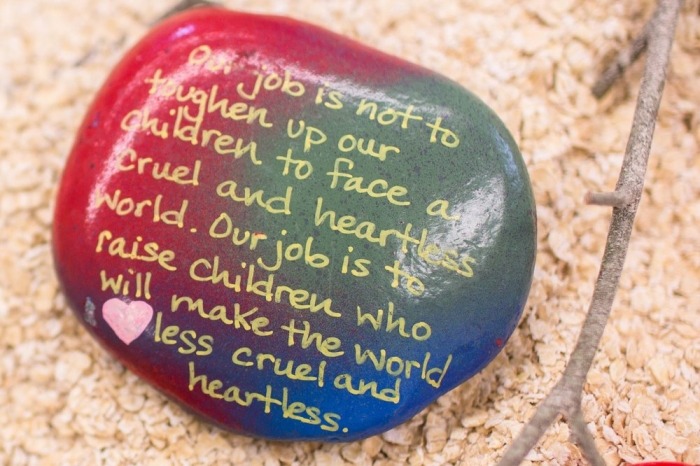 Our job is not to
toughen up our
children to face a
cruel and heartless
world. Our job is to
raise children who
will make the world
less cruel and
heartless.